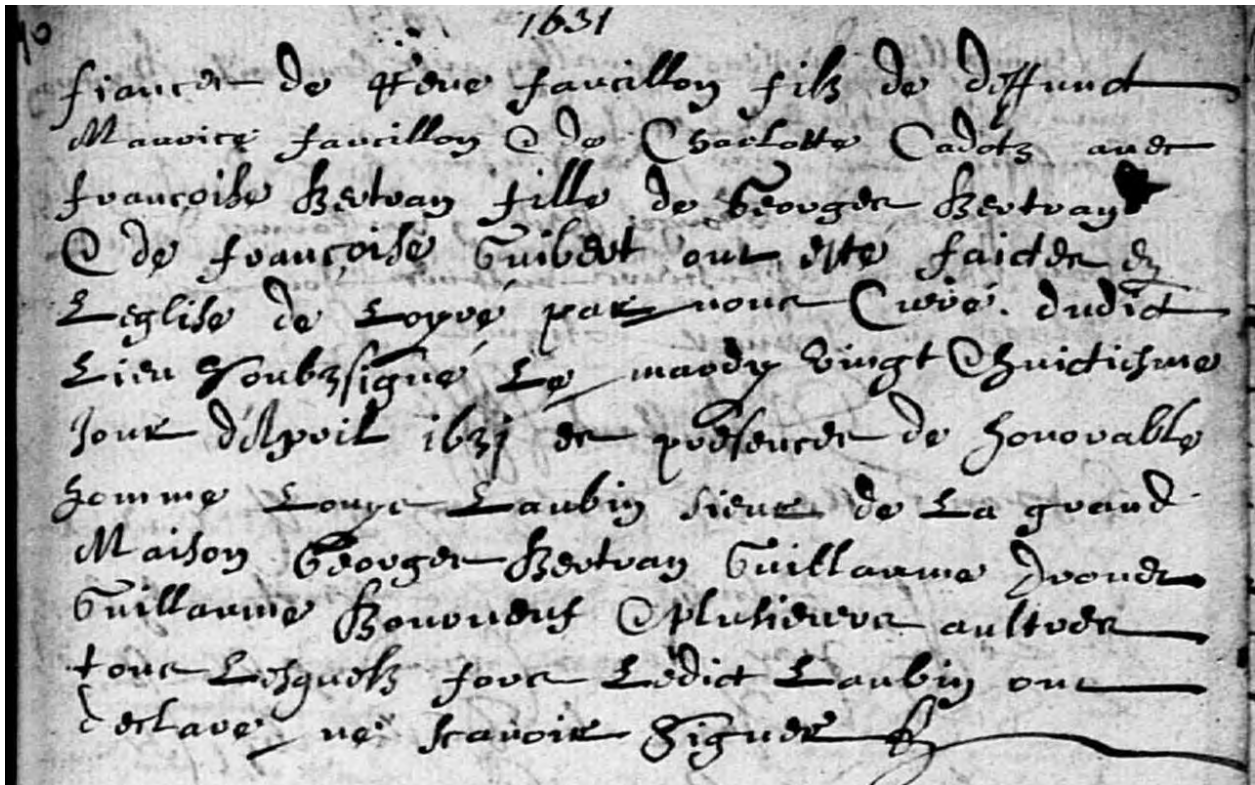 1631
fiances de Rene favillon filz de deffunct
Maurice favillon & de Charlotte Cadotz avec
françoise Bertran fille de Georges Bertran
& de françoise Guibert ont esté faictes en
Leglise de Loyré par nous Curé dudict
Lieu Soubzsigné Le mardy vingt & huictiesme
Jour d'Apvril 1631 es presences de honorable
homme Louys Laubin sieur de La grand
Maison Georges Bertran Guillaume
Guillaume & plusieurs aultres
tous Lesquelz fors Ledict Laubin ont
declare ne scavoir Signer